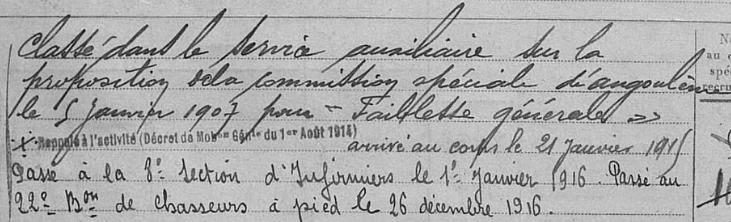 Classé dans le service auxiliaire sur la
proposition de la commission spéciale d'angoulème
le 5 Janvier 1907 pour "Faiblesse générale"
Rappelé à l'activité (Décret de Mobon Génle du 1er Août 1914) arrivé au corps le 21 Janvier 1915
Passé à la 8e Section d'Infirmiers le 1er Janvier 1916. Passé au
22e Bon de chasseurs à pied le 26 décembre 1916.